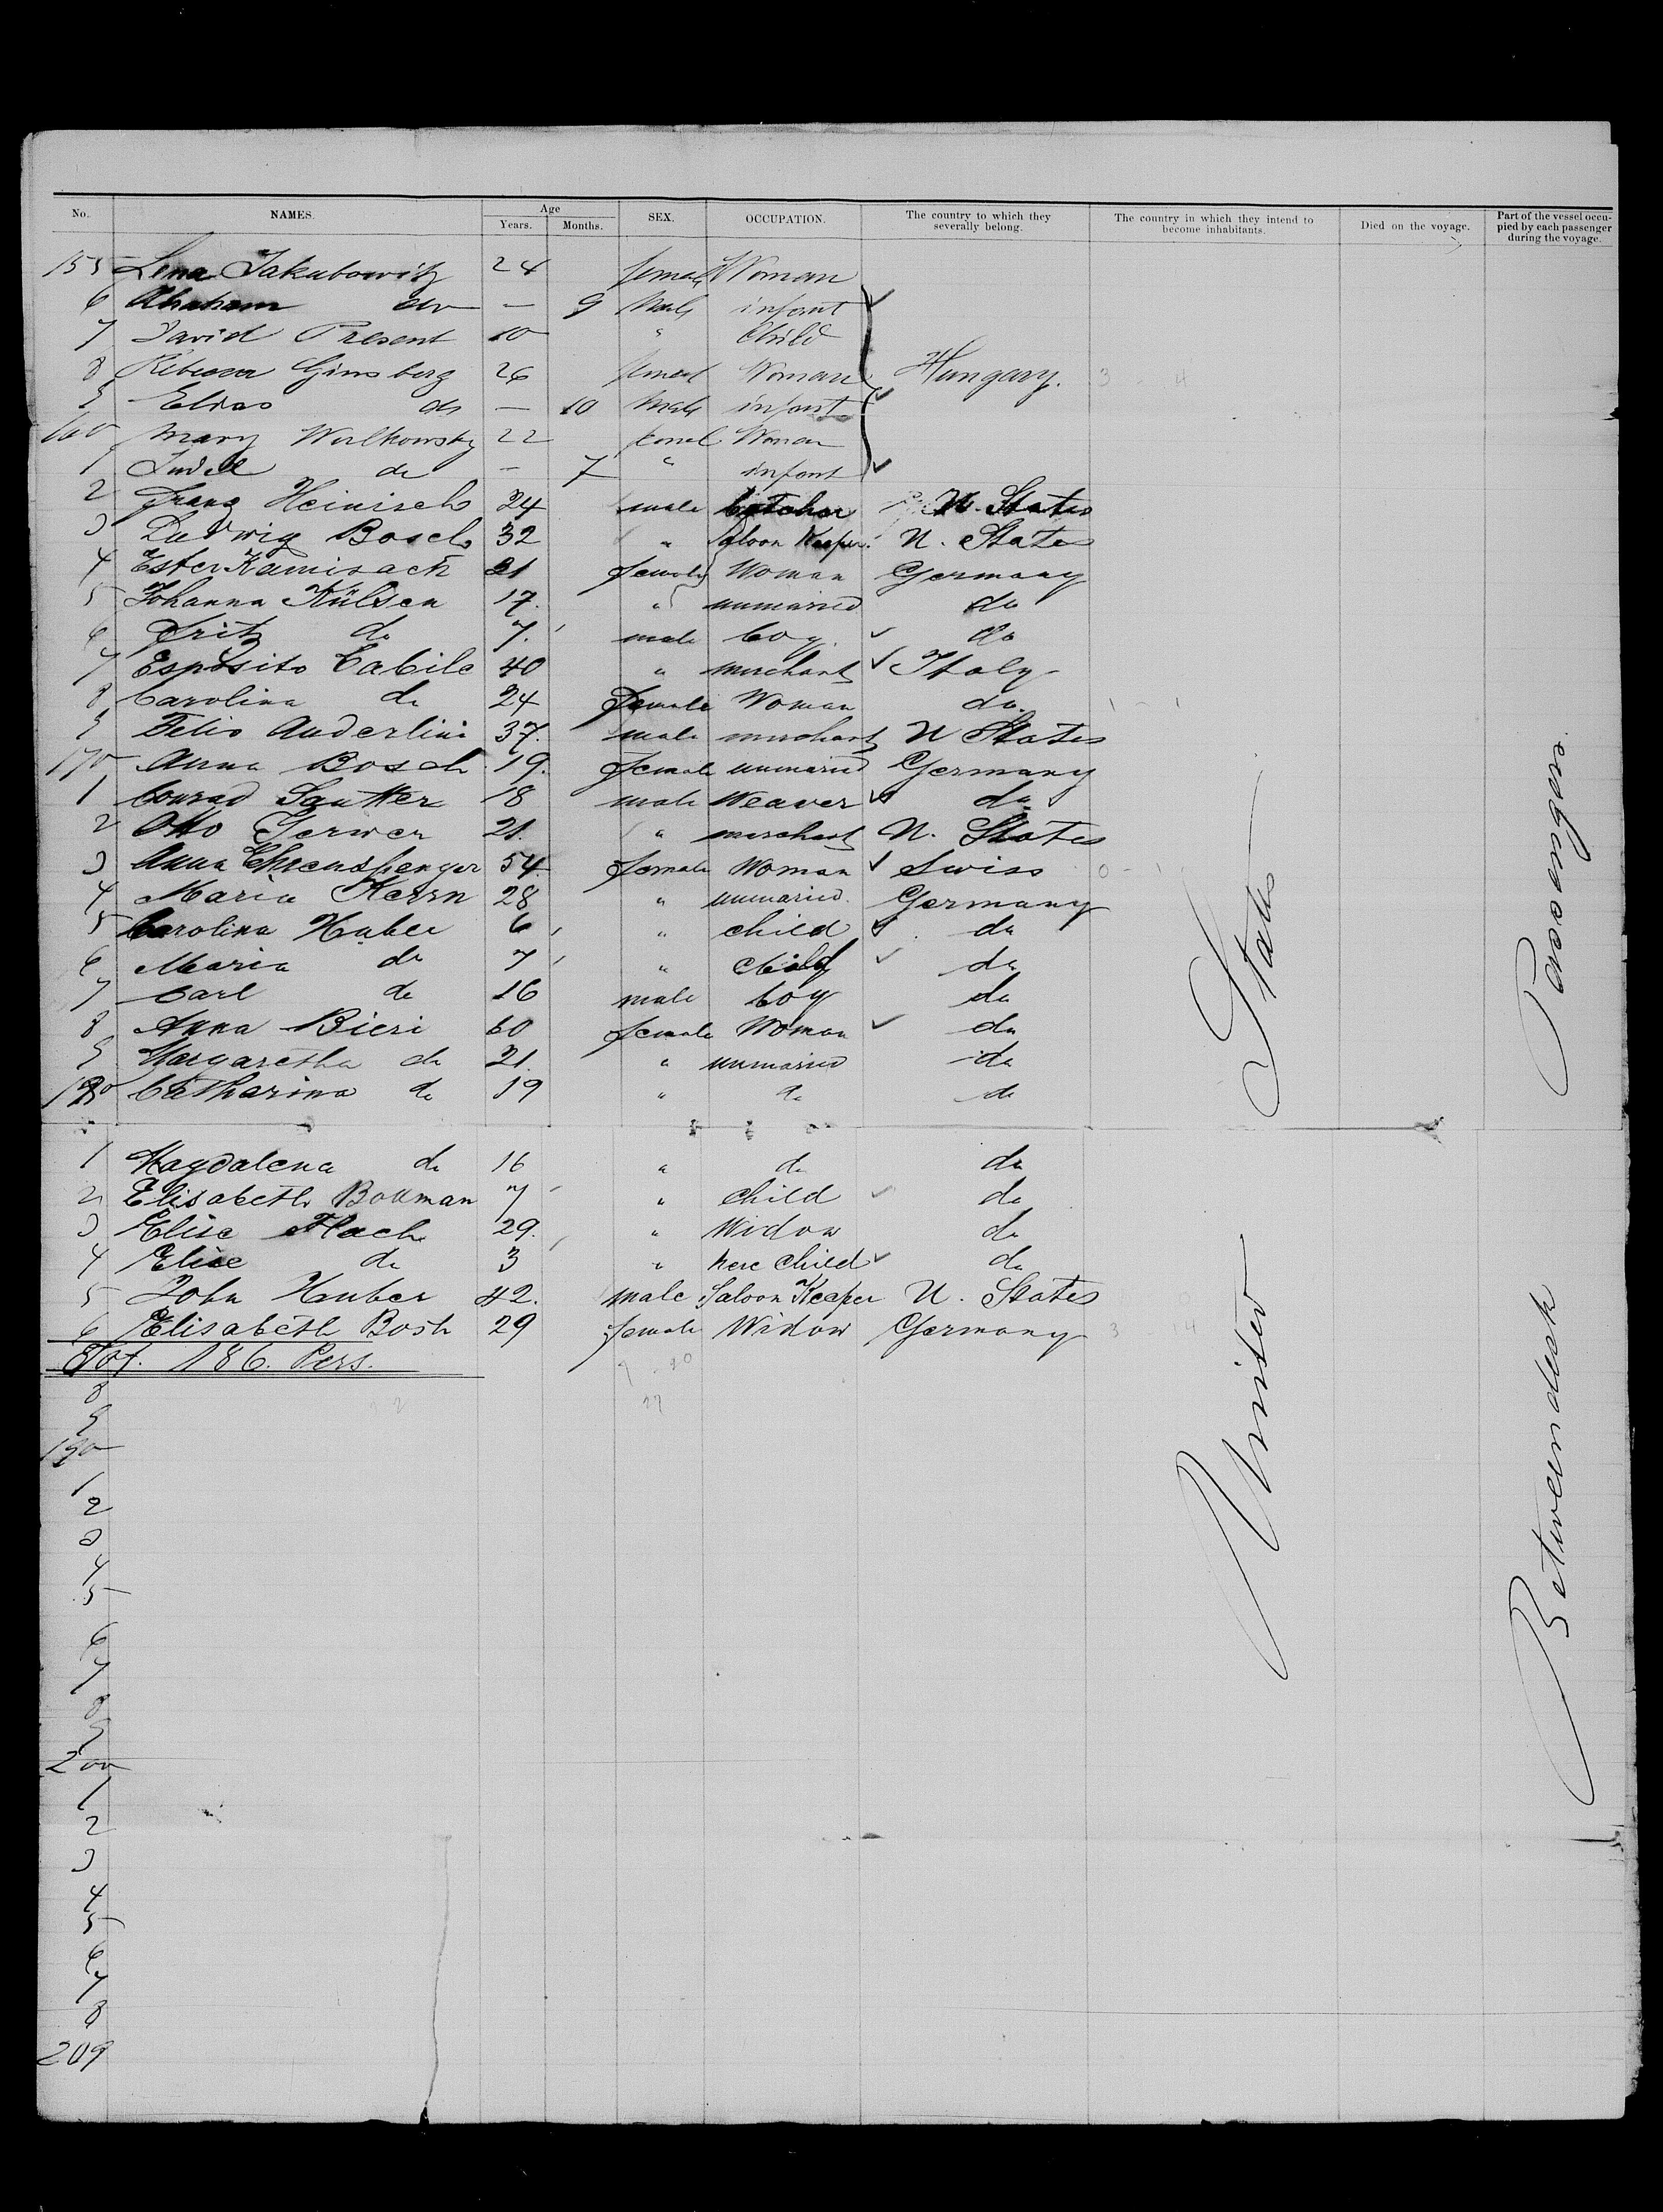 No. NAMES. Age Years. Months. SEX. OCCUPATION. The country to which they severally belong. The country in which they intend to become inhabitants. Died on the voyage. Part of the vessel occupied by each passenger during the voyage.
155 Lena Jakubowitz 24 female Woman
6 Abraham do — 9 Male infant
7 David Present 10 " Child
8 Rebecca Ginsberg 26 femal Woman Hungary. 3 - 4
9 Elias do — 10 Male infant
160 Mary Wulkowsky 22 femal Woman
1 Judel do — 7 " infant
2 Franz Heinisch 24 male butcher U. States
3 Ludwig Bosch 32 " Saloon Keeper U. States
4 Ester Kamisack 21 female Woman Germany
5 Johanna Külsen 17. " unmarried do
6 Fritz do 7. male boy. do
7 Esposito Cabile 40 " merchant Italy
8 Carolina do 24 female Woman do. 1 - 1
9 Felio Anderlini 37. male merchant U States
170 Anna Bosch 19. female unmaried Germany
1 Conrad Sautter 18 male Weaver do
2 Otto Gerwer 21. " merchant U. States
3 Anna Ehrensperger 54 female Woman Swiss 0 - 1
4 Maria Kern 28 " unmaried. Germany
5 Carolina Huber 6 " child do
6 Maria do 7 " child do
7 Carl do 16 male boy do
8 Anna Bieri 60 female Woman do
9 Margaretha do 21. " unmaried do
180 Catharina do 19 " do do
1 Magdalena do 16 " do do
2 Elisabeth Bollman 7 " child do
3 Elise Flach 29. " Widow do
4 Elise do 3 " here child do
5 John Huber 42. male Saloon Keeper U. States
6 Elisabeth Bosh 29 female Widow Germany 3 14
Tot. 186. Pers.
8
9
190
1
2
3
4
5
6
7
8
9
200
1
2
3
4
5
6
7
8
209
United States
Betweendeck Passengers.